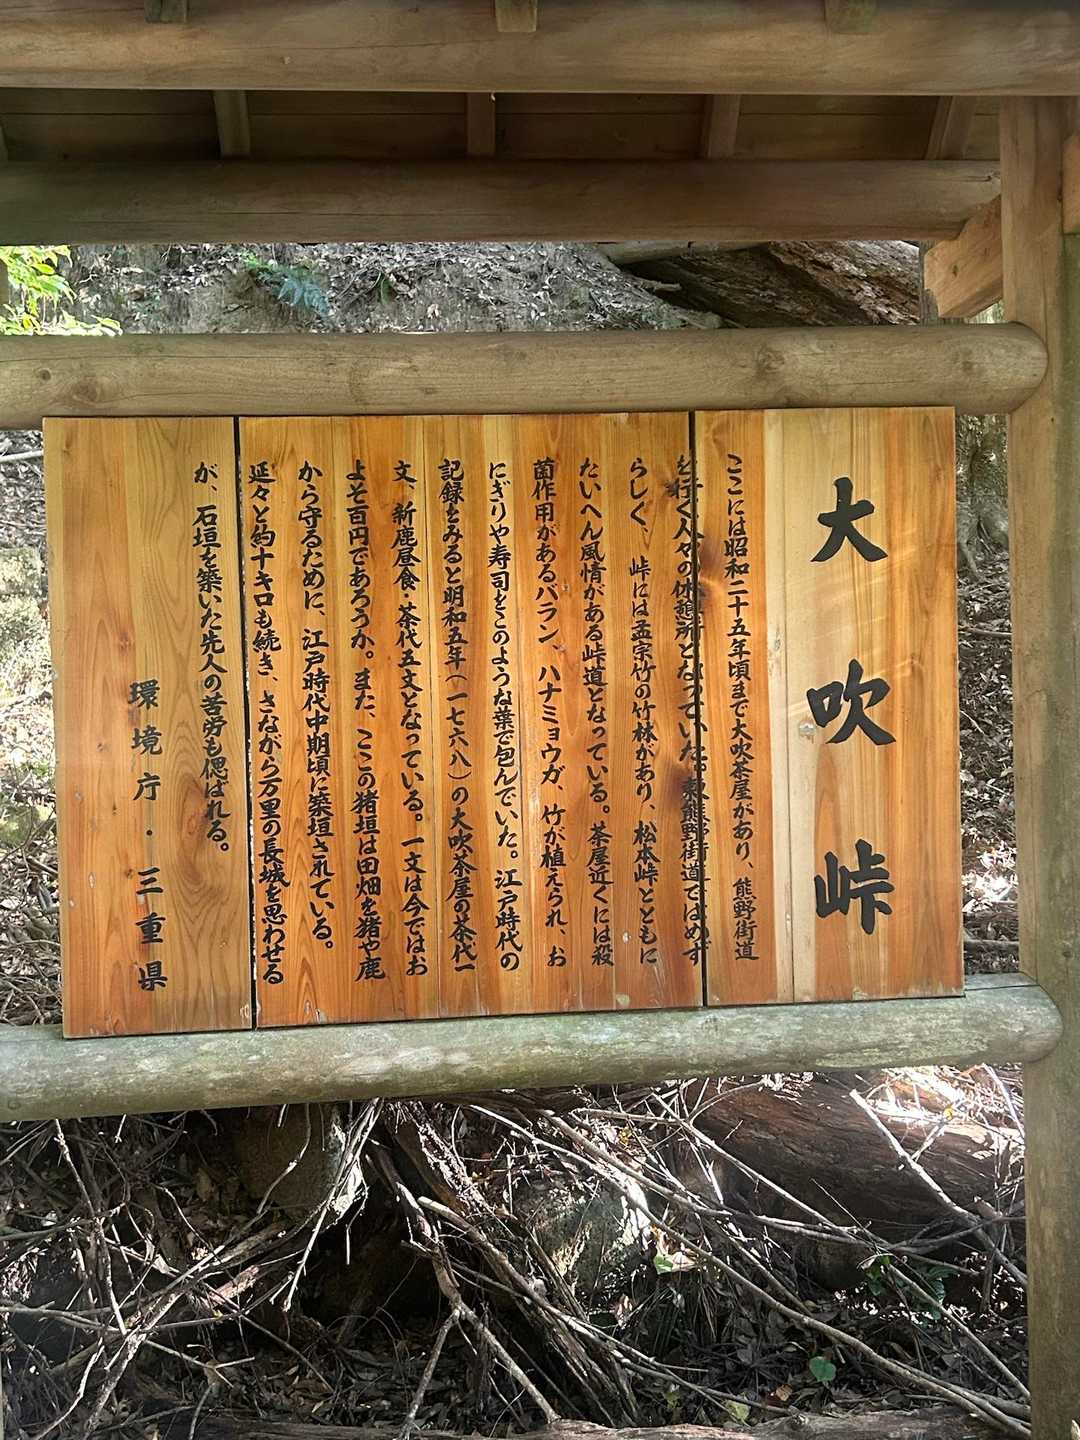 大吹峠
ここには昭和二十五年頃まで大吹茶屋があり、熊野街道
を行く人々の休憩所となっていた。東熊野街道ではめず
らしく、峠には孟宗竹の竹林があり、松本峠とともに
たいへん風情がある峠道となっている。茶屋近くには殺
菌作用があるバラン、ハナミョウガ、竹が植えられ、お
にぎりや寿司をこのような葉で包んでいた。江戸時代の
記録をみると明和五年(一七六八)の大吹茶屋の茶代一
文、新鹿昼食・茶代五文となっている。一文は今ではお
よそ百円であろうか。また、ここの猪垣は田畑を猪や鹿
から守るために、江戸時代中期頃に築垣されている。
延々と約十キロも続き、さながら万里の長城を思わせる
が、石垣を築いた先人の苦労も偲ばれる。
環境庁・三重県